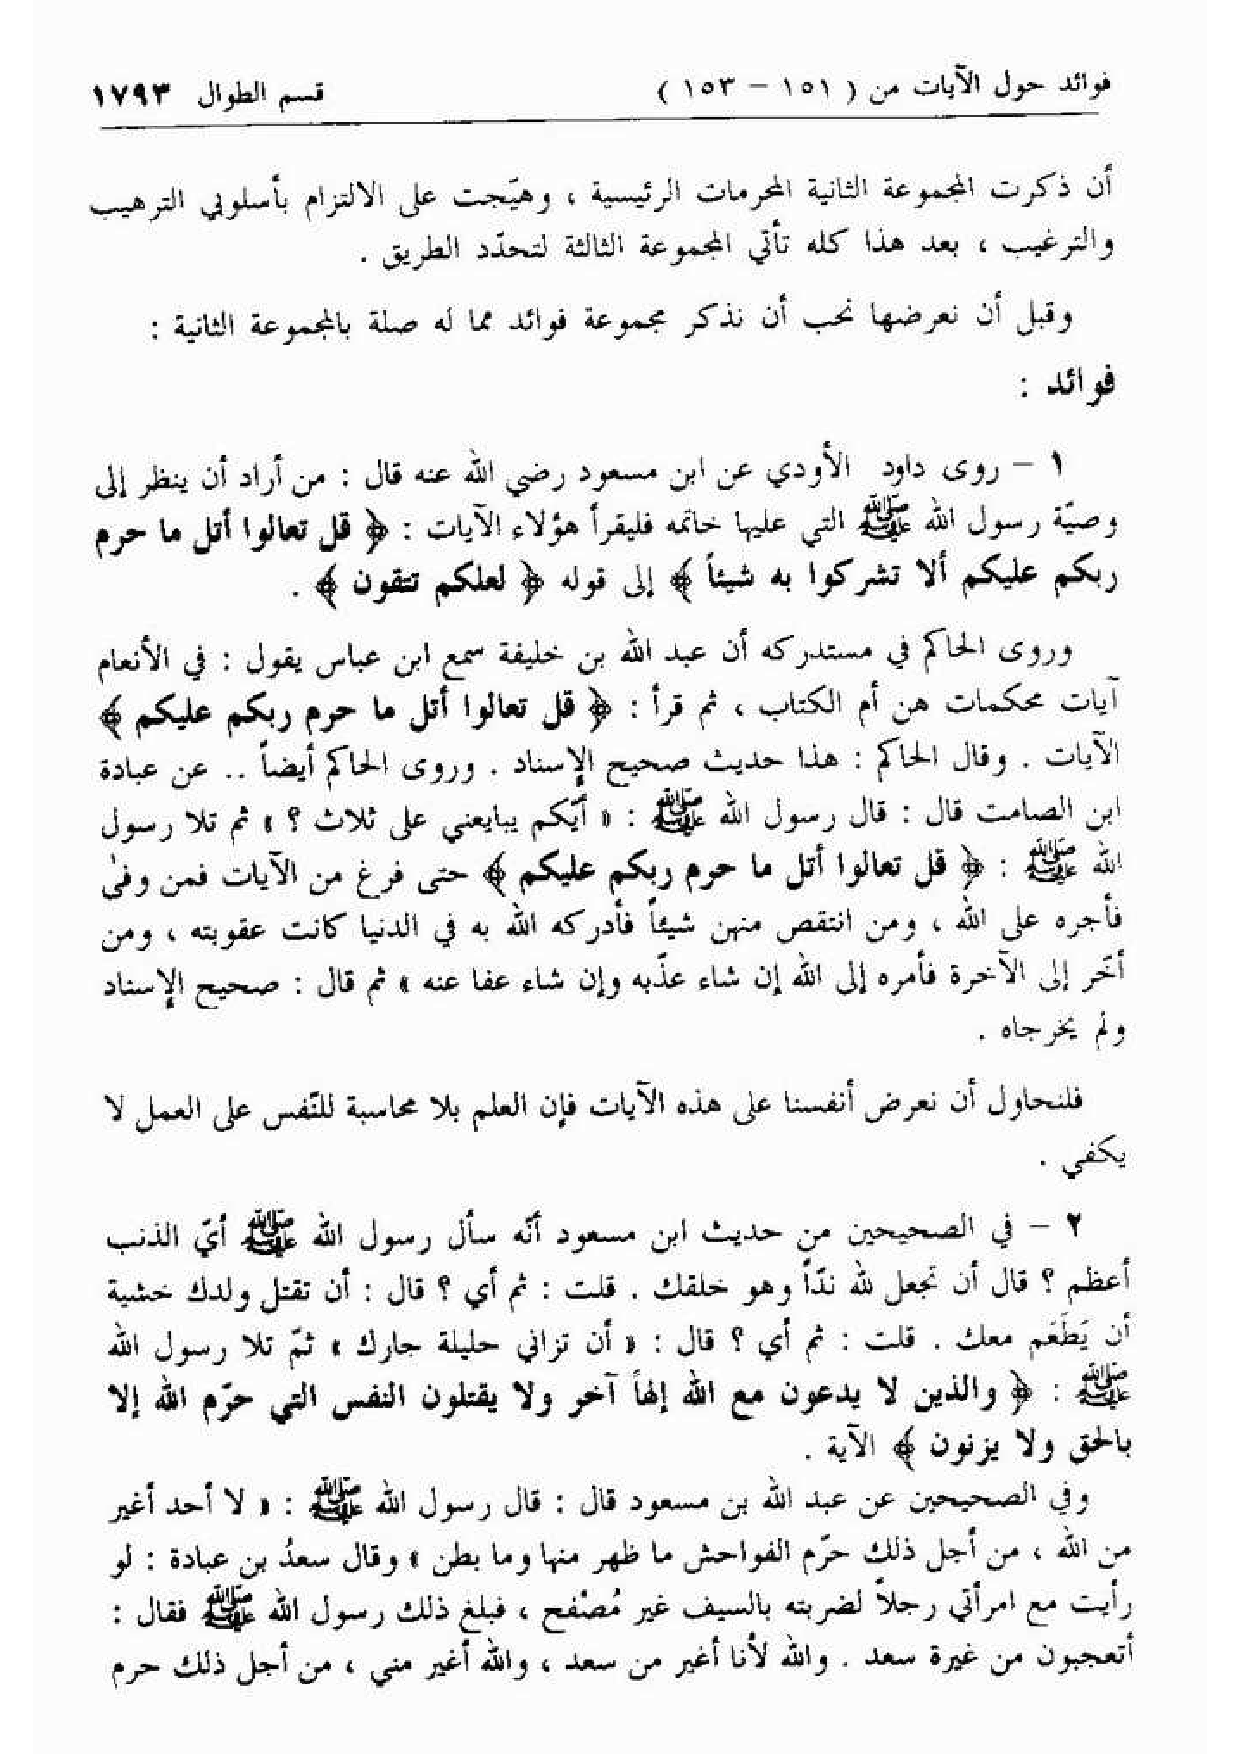 فوائد حول الآيات من ( ١٥١ – ١٥٣ ) قسم الطوال ١٧٩٣
أن ذكرت المجموعة الثانية المحرمات الرئيسية ، وهيّجت على الالتزام بأسلوبي الترهيب
والترغيب ، بعد هذا كله تأتي المجموعة الثالثة لتحدّد الطريق .
وقبل أن نعرضها نحب أن نذكر مجموعة فوائد مما له صلة بالمجموعة الثانية :
فوائد :
١ – روى داود الأودي عن ابن مسعود رضي الله عنه قال : من أراد أن ينظر إلى
وصيّة رسول الله ﷺ التي عليها خاتمه فليقرأ هؤلاء الآيات : ﴿ قل تعالوا أتل ما حرم
ربكم عليكم ألا تشركوا به شيئاً ﴾ إلى قوله ﴿ لعلكم تتقون ﴾ .
وروى الحاكم في مستدركه أن عبد الله بن خليفة سمع ابن عباس يقول : في الأنعام
آيات محكمات هن أم الكتاب ، ثم قرأ : ﴿ قل تعالوا أتل ما حرم ربكم عليكم ﴾
الآيات . وقال الحاكم : هذا حديث صحيح الإسناد . وروى الحاكم أيضاً .. عن عبادة
ابن الصامت قال : قال رسول الله ﷺ : « أيّكم يبايعني على ثلاث ؟ » ثم تلا رسول
الله ﷺ : ﴿ قل تعالوا أتل ما حرم ربكم عليكم ﴾ حتى فرغ من الآيات فمن وفىٰ
فأجره على الله ، ومن انتقص منهن شيئاً فأدركه الله به في الدنيا كانت عقوبته ، ومن
أخّر إلى الآخرة فأمره إلى الله إن شاء عذّبه وإن شاء عفا عنه » ثم قال : صحيح الإسناد
ولم يخرجاه .
فلنحاول أن نعرض أنفسنا على هذه الآيات فإن العلم بلا محاسبة للنّفس على العمل لا
يكفي .
٢ – في الصحيحين من حديث ابن مسعود أنّه سأل رسول الله ﷺ أيّ الذنب
أعظم ؟ قال أن تجعل لله ندّاً وهو خلقك . قلت : ثم أي ؟ قال : أن تقتل ولدك خشية
أن يَطْعَم معك . قلت : ثم أي ؟ قال : « أن تزاني حليلة جارك » ثمّ تلا رسول الله
ﷺ : ﴿ والذين لا يدعون مع الله إلهاً آخر ولا يقتلون النفس التي حرّم الله إلا
بالحق ولا يزنون ﴾ الآية .
وفي الصحيحين عن عبد الله بن مسعود قال : قال رسول الله ﷺ : « لا أحد أغير
من الله ، من أجل ذلك حرّم الفواحش ما ظهر منها وما بطن » وقال سعدُ بن عبادة : لو
رأيت مع امرأتي رجلاً لضربته بالسيف غير مُصْفح ، فبلغ ذلك رسول الله ﷺ فقال :
أتعجبون من غيرة سعد . والله لأنا أغير من سعد ، والله أغير مني ، من أجل ذلك حرم